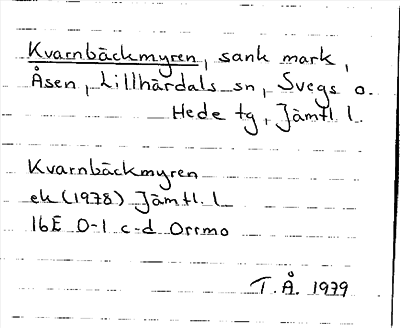 Kvarnbäckmyren, sank mark,
Åsen, Lillhärdals sn, Svegs o.
Hede tg, Jämtl. l.
Kvarnbäckmyren
ek (1978) Jämtl. l
16E 0-1 c-d Orrmo
T.Å. 1979